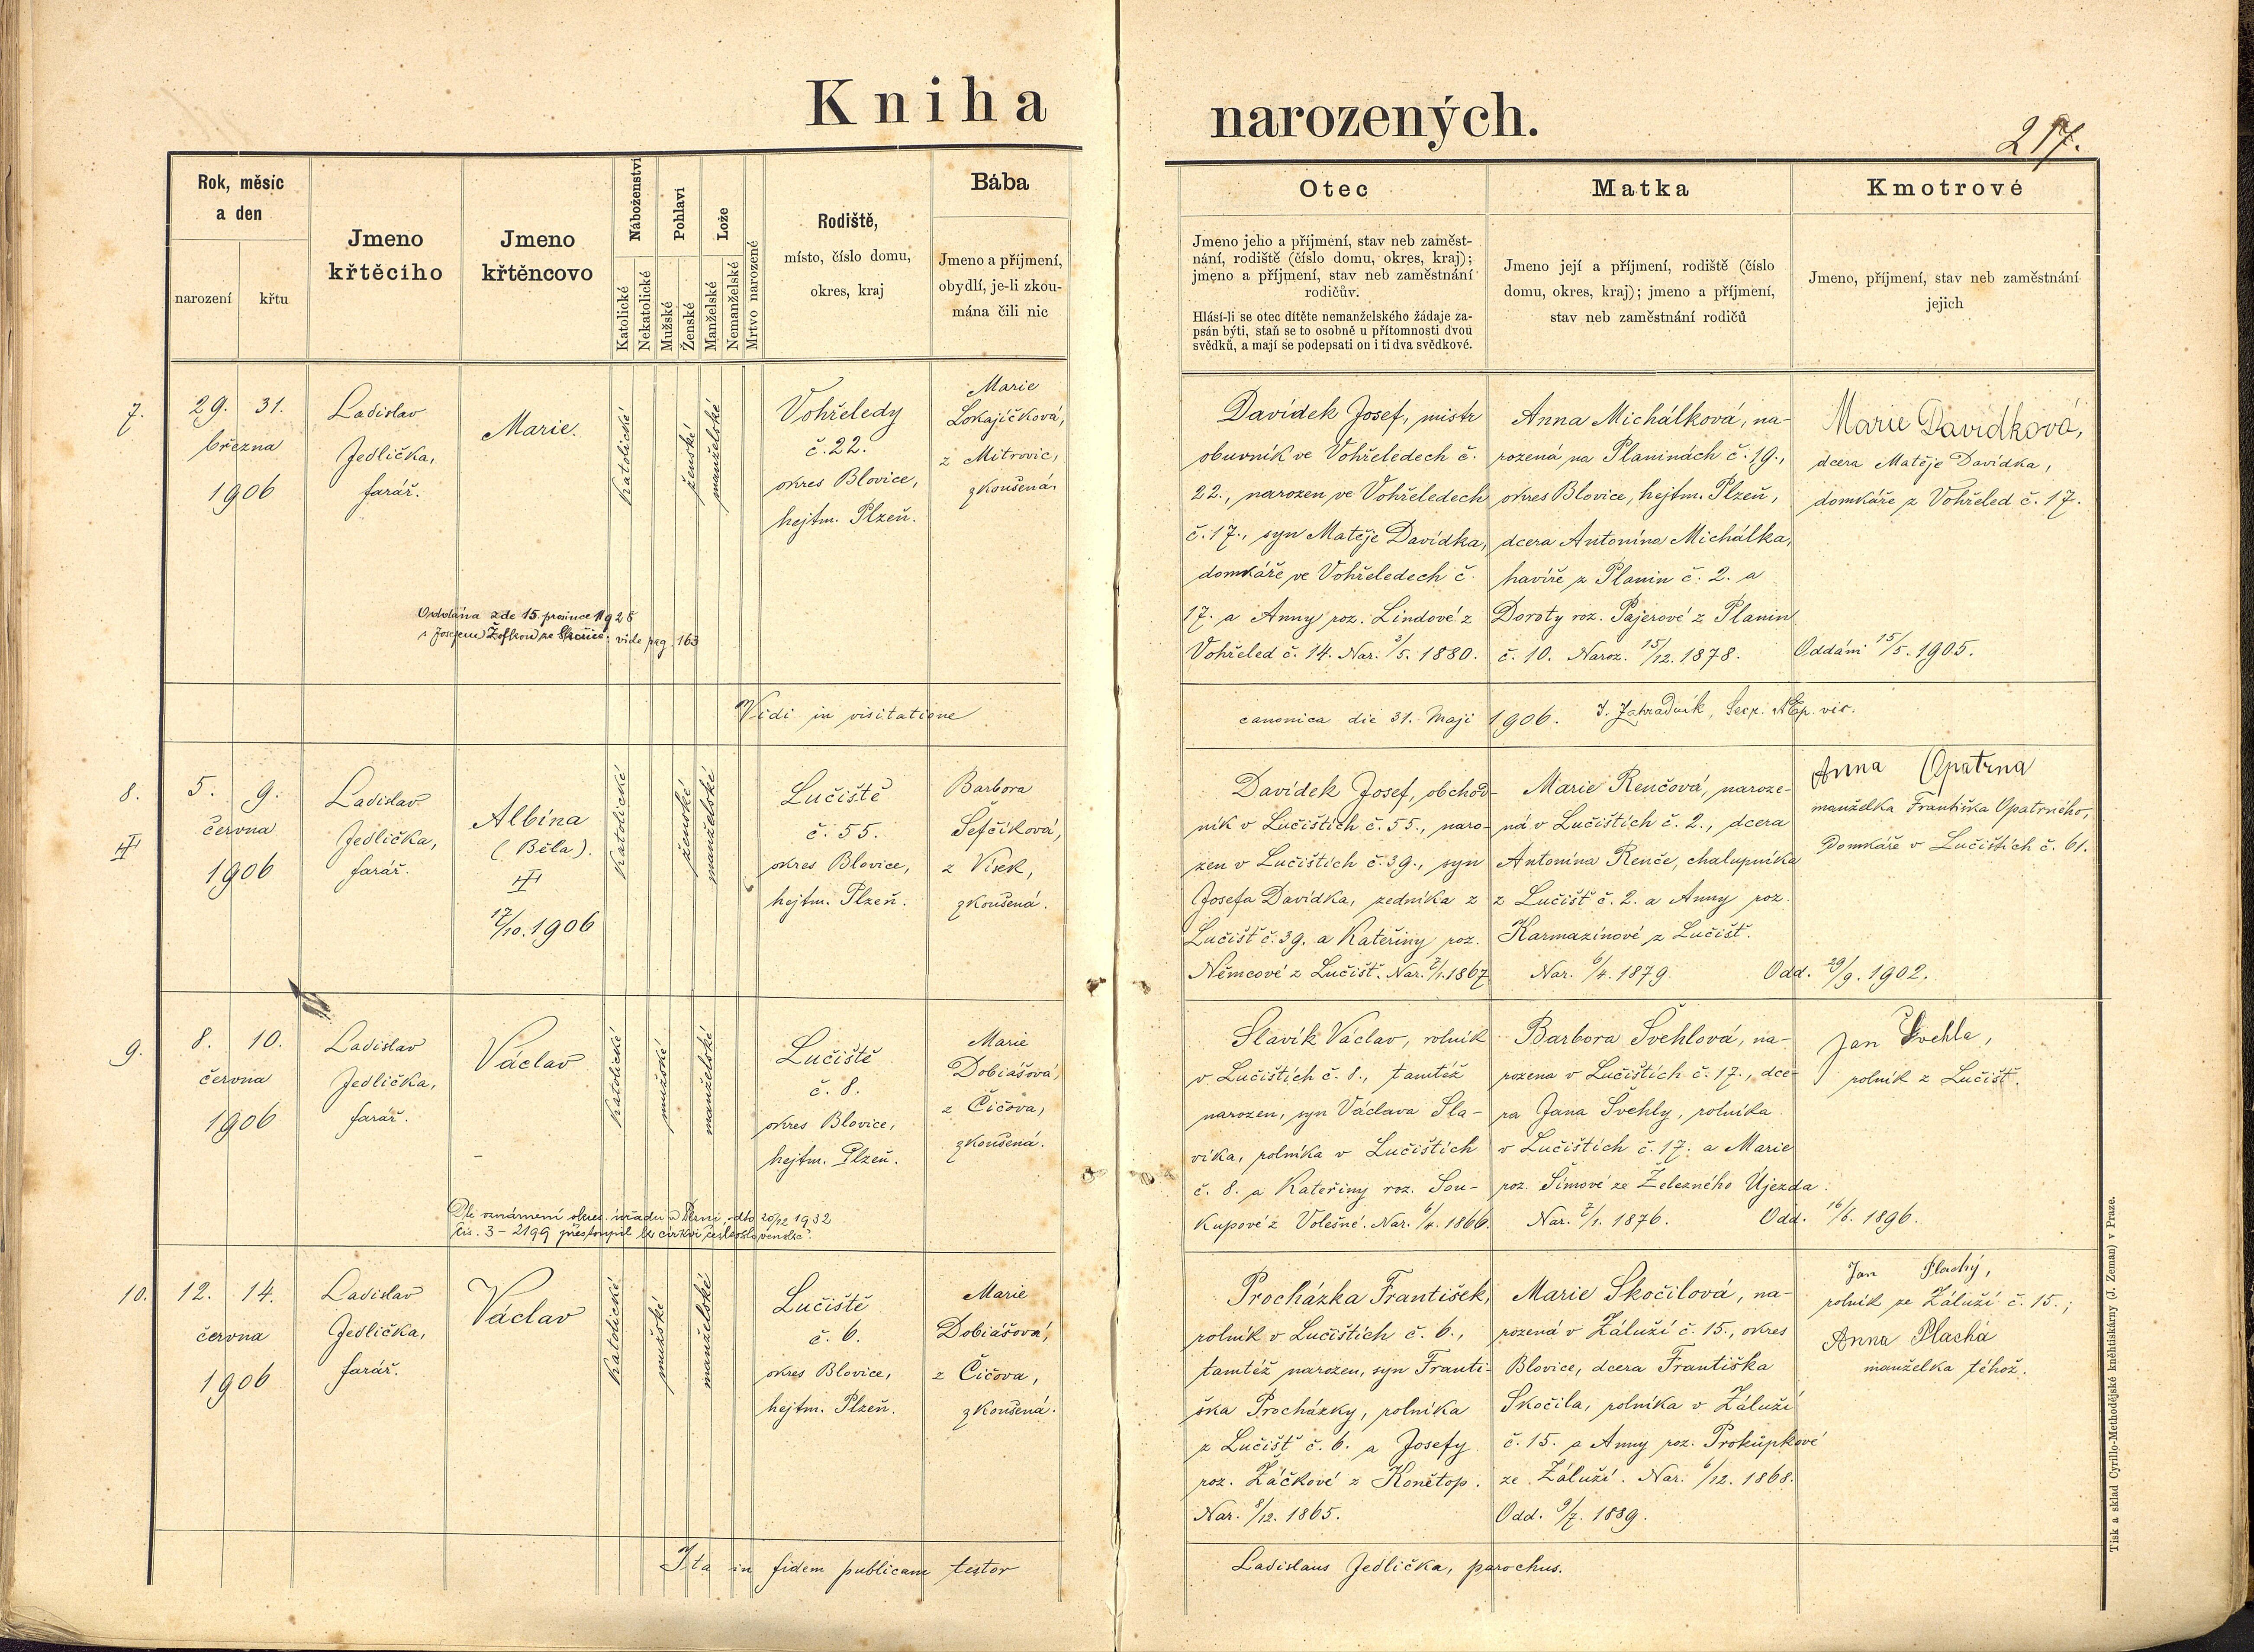 Kniha narozených.
217.
Rok, měsíc
a den
narození
křtu
Jmeno
křtěcího
Jmeno
křtěncovo
Náboženství
Katolické
Nekatolické
Pohlaví
Mužské
Ženské
Lože
Manželské
Nemanželské
Mrtvo narozené
Rodiště,
místo, číslo domu,
okres, kraj
Bába
Jmeno a příjmení,
obydlí, je-li zkou-
mána čili nic
Otec
Jmeno jeho a příjmení, stav neb zaměst-
nání, rodiště (číslo domu, okres, kraj);
jmeno a příjmení, stav neb zaměstnání
rodičův.
Hlásí-li se otec dítěte nemanželského žádaje za-
psán býti, staň se to osobně u přítomnosti dvou
svědků, a mají se podepsati on i ti dva svědkové.
Matka
Jmeno její a příjmení, rodiště (číslo
domu, okres, kraj); jmeno a příjmení,
stav neb zaměstnání rodičů
Kmotrové
Jmeno, příjmení, stav neb zaměstnání
jejich
7.
29. 31.
března
1906
Ladislav
Jedlička,
farář.
Marie.
katolické
ženské
manželské
Vohřeledy
č. 22.
okres Blovice,
hejtm. Plzeň.
Marie
Lokajíčková,
z Mitrovic,
zkoušená.
Oddána zde 15. prosince 1928
s Josefem ze vide pag. 163
Davídek Josef, mistr
obuvník ve Vohřeledech č.
22., narozen ve Vohřeledech
č. 17., syn Matěje Davídka,
domkáře ve Vohřeledech č.
17. a Anny roz. Lindové z
Vohřeled č. 14. Nar. 3/5. 1880.
Anna Michálková, na-
rozená na Planinách č. 19.,
okres Blovice, hejtm. Plzeň,
dcera Antonína Michálka,
havíře z Planin č. 2. a
Doroty roz. Pajerové z Planin
č. 10. Naroz. 15/12. 1878.
Marie Davídková,
dcera Matěje Davídka,
domkáře z Vohřeled č. 17.
Oddáni 15/5. 1905.
Vidi in visitatione canonica die 31. Maji 1906. J. Zahradník, Secr. AEp. vic.
8.
5. 9.
června
1906
Ladislav
Jedlička,
farář.
Albína
(Běla).
17/10. 1906
katolické
ženské
manželské
Lučiště
č. 55.
okres Blovice,
hejtm. Plzeň.
Barbora
Šefčíková,
z Vísek,
zkoušená.
Davídek Josef, obchod-
ník v Lučištích č. 55., naro-
zen v Lučištích č. 39., syn
Josefa Davídka, zedníka z
Lučišť č. 39. a Kateřiny roz.
Němcové z Lučišť. Nar. 7/1. 1867
Marie Renčová, naroze-
ná v Lučištích č. 2., dcera
Antonína Renče, chalupníka
z Lučišť č. 2. a Anny roz.
Karmazínové z Lučišť.
Nar. 6/4. 1879
Odd. 29/9. 1902.
Anna Opatrna
manželka Františka Opatrného,
Domkáře v Lučištích č. 61.
9.
8. 10.
června
1906
Ladislav
Jedlička,
farář.
Václav
katolické
mužské
manželské
Lučiště
č. 8.
okres Blovice,
hejtm. Plzeň.
Marie
Dobiášová,
z Čičova,
zkoušená.
Dle oznámení okres. úřadu v Plzni, dto 20/12 1932
čís. 3-2199 přestoupil k církvi československé.
Slavík Václav, rolník
v Lučištích č. 8., tamtéž
narozen, syn Václava Sla-
víka, rolníka v Lučištích
č. 8. a Kateřiny roz. Sou-
kupové z Volešné. Nar. 6/4. 1866.
Barbora Švehlová, na-
rozena v Lučištích č. 17., dce-
ra Jana Švehly, rolníka
v Lučištích č. 17. a Marie
roz. Šimové ze Železného Újezda.
Nar. 7/1. 1876.
Odd. 16/6. 1896.
Jan Švehla,
rolník z Lučišť.
10.
12. 14.
června
1906
Ladislav
Jedlička,
farář.
Václav
katolické
mužské
manželské
Lučiště
č. 6.
okres Blovice,
hejtm. Plzeň.
Marie
Dobiášová,
z Čičova,
zkoušená.
Procházka František,
rolník v Lučištích č. 6.,
tamtéž narozen, syn Franti-
ška Procházky, rolníka
z Lučišť č. 6. a Josefy
roz. Žáčkové z Konětop.
Nar. 8/12. 1865.
Marie Skočilová, na-
rozená v Záluží č. 15., okres
Blovice, dcera Františka
Skočila, rolníka v Záluží
č. 15. a Anny roz. Prokůpkové
ze Záluží. Nar. 6/12. 1868.
Odd. 9/7. 1889.
Jan Plachý,
rolník ze Záluží č. 15.;
Anna Plachá
manželka téhož.
Ita in fidem publicam testor Ladislaus Jedlička, parochus.
Tisk a sklad Cyrillo-Methodějské kněhtiskárny (J. Zeman) v Praze.